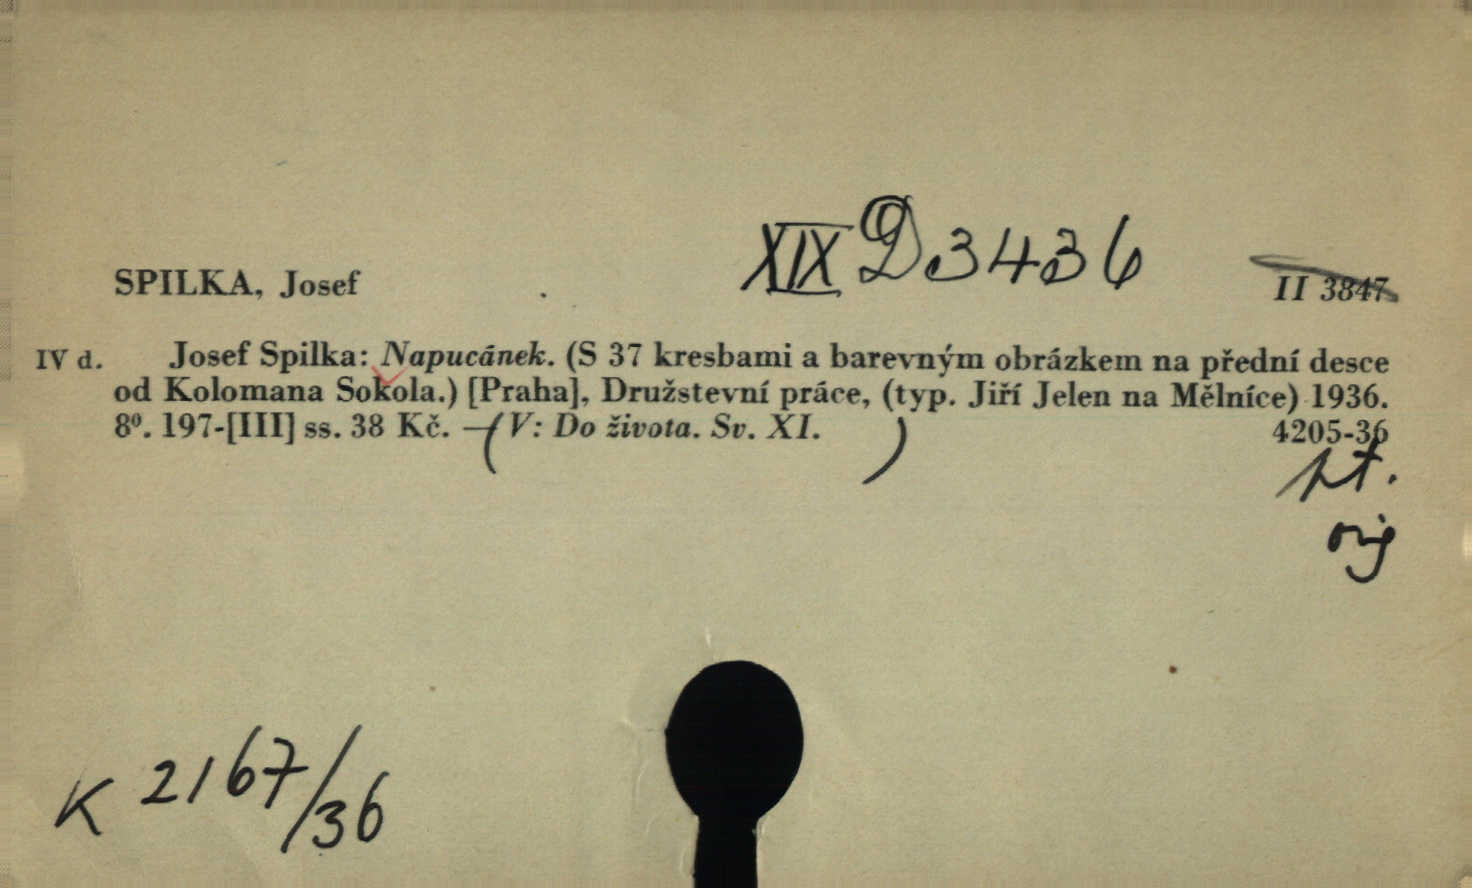 XIX D 3436
SPILKA, Josef
II 3847
IV d. Josef Spilka: Napucánek. (S 37 kresbami a barevným obrázkem na přední desce
od Kolomana Sokola.) [Praha], Družstevní práce, (typ. Jiří Jelen na Mělníce) 1936.
8⁰. 197-[III] ss. 38 Kč. — (V: Do života. Sv. XI. )
4205-36
orig
K 2167/36